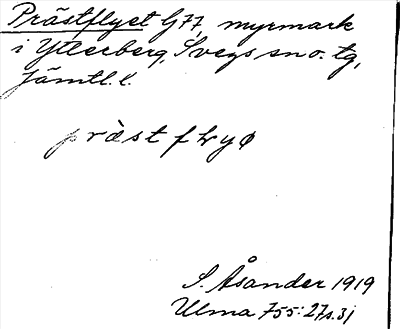 Prästflyet G77, myrmark
i Ytterberg, Svegs sn o. tg,
Jämtl. l.
præst flyø
S. Åsander 1919
Ulma 755:27 s. 31